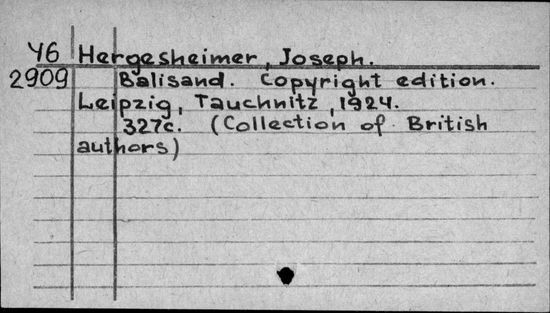 У6 Hergesheimer, Joseph.
2909 Balisand. Copyright edition.
Leipzig, Tauchnitz, 1924.
327с. (Collection of British
authors)